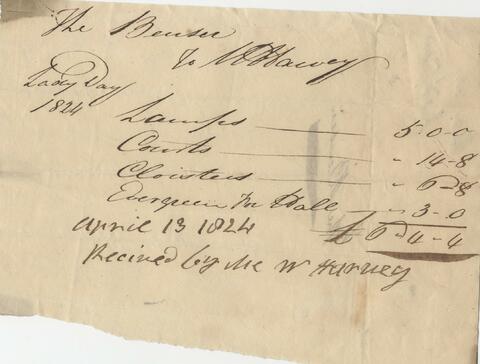 The Bursar
To W Harvey
Lady Day
1824
Lamps 5-0-0
Courts " 14-8
Cloisters " 6-8
Evergreen for Hall " 3-0
£6-4-4
April 13 1824
Recived by Me W Harvey